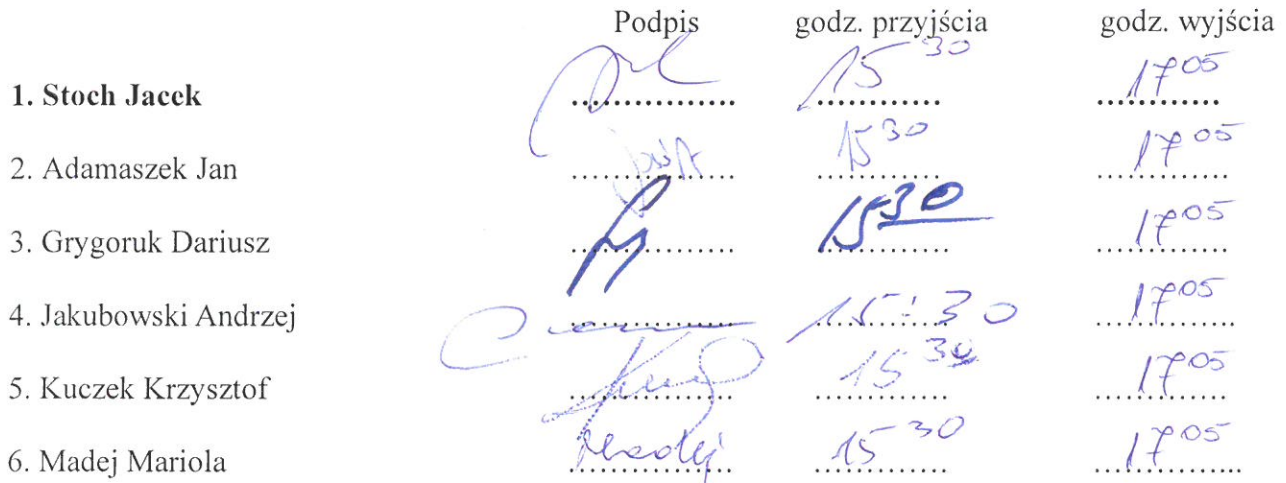 Podpis godz. przyjścia godz. wyjścia
1. Stoch Jacek ................ 15 30 ............ 17 05 ............
2. Adamaszek Jan ................ 15 30 ............ 17 05 ............
3. Grygoruk Dariusz ................ 15 30 ............ 17 05 ............
4. Jakubowski Andrzej ................ 15:30 ............ 17 05 ............
5. Kuczek Krzysztof ................ 15 30 ............ 17 05 ............
6. Madej Mariola Madej ................ 15 30 ............ 17 05 ............